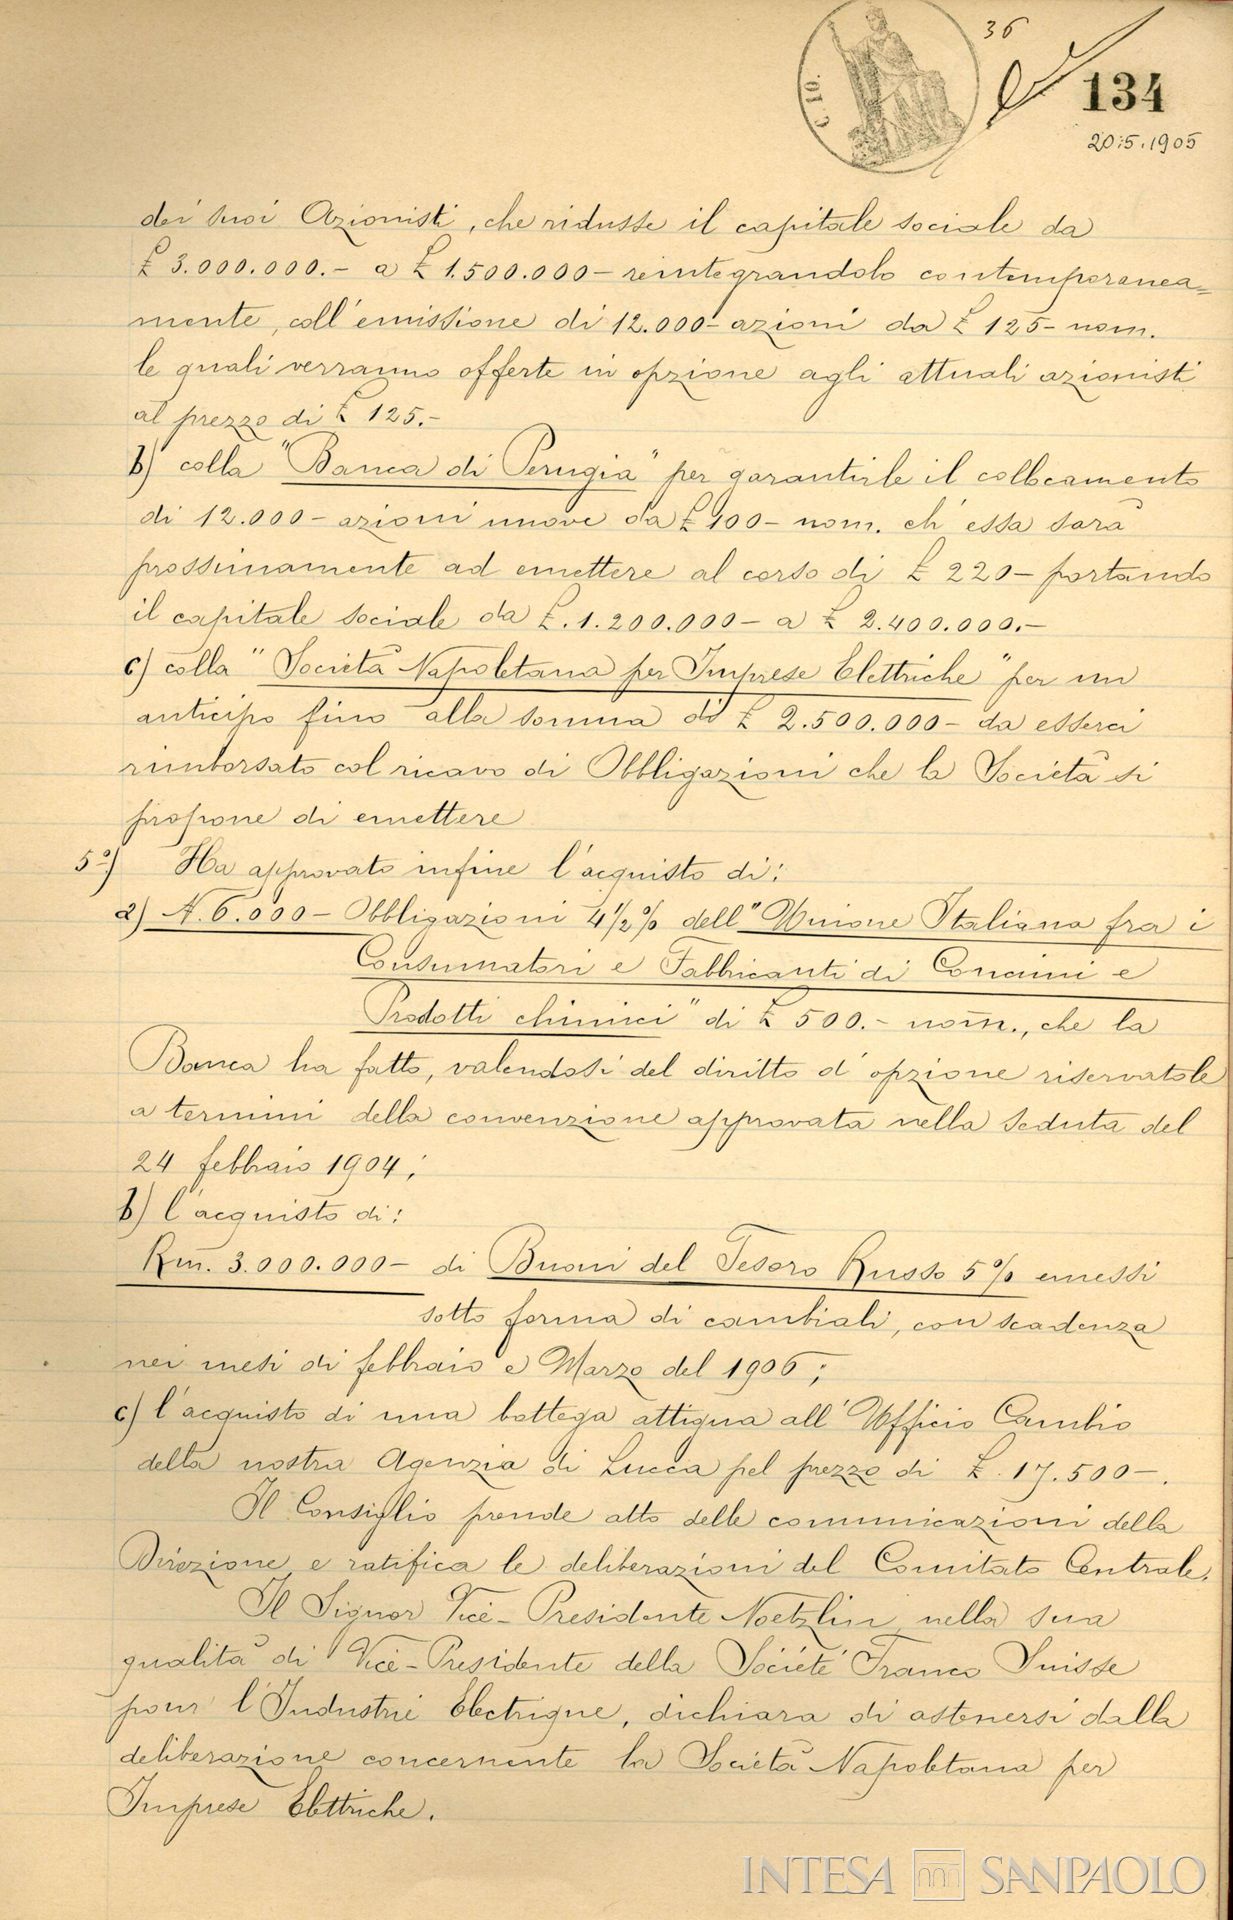 C. 10.
36
134
20.5.1905
dei suoi Azionisti, che ridusse il capitale sociale da
£ 3.000.000.- a £ 1.500.000- reintegrandolo contemporanea=
mente, coll'emissione di 12.000- azioni da £ 125- nom.
le quali verranno offerte in opzione agli attuali azionisti
al prezzo di £ 125.-
b) colla "Banca di Perugia" per garantirle il collocamento
di 12.000- azioni nuove da £ 100- nom. ch'essa sarà
prossimamente ad emettere al corso di £ 220- portando
il capitale sociale da £. 1.200.000- a £ 2.400.000.-
c) colla "Società Napoletana per Imprese Elettriche" per un
anticipo fino alla somma di £ 2.500.000- da esserci
rimborsato col ricavo di Obbligazioni che la Società si
propone di emettere
5º) Ha approvato infine l'acquisto di:
a) N. 6.000- Obbligazioni 4½% dell'"Unione Italiana fra i
Consumatori e Fabbricanti di Concimi e
Prodotti chimici" di £ 500.- nom., che la
Banca ha fatto, valendosi del diritto d'opzione riservatole
a termini della convenzione approvata nella seduta del
24 febbraio 1904;
b) l'acquisto di:
Rm. 3.000.000- di Buoni del Tesoro Russo 5% emessi
sotto forma di cambiali, con scadenza
nei mesi di febbraio e Marzo del 1906;
c) l'acquisto di una bottega attigua all'Ufficio Cambio
della nostra Agenzia di Lucca pel prezzo di £. 17.500-.
Il Consiglio prende atto delle comunicazioni della
Direzione e ratifica le deliberazioni del Comitato Centrale.
Il Signor Vice-Presidente Noetzlin, nella sua
qualità di Vice-Presidente della Société Franco Suisse
pour l'Industrie Electrique, dichiara di astenersi dalla
deliberazione concernente la Società Napoletana per
Imprese Elettriche.
INTESA SANPAOLO